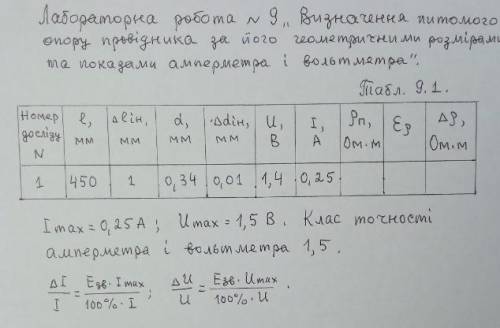 Лабораторна робота № 9 „Визначення питомого
опору провідника за його геометричними розмірами
та показами амперметра і вольтметра".
Табл. 9.1.
Номер досліду N | l, мм | Δlін, мм | d, мм | Δdін, мм | U, В | I, А | ρп, Ом·м | ερ | Δρ, Ом·м
1 | 450 | 1 | 0,34 | 0,01 | 1,4 | 0,25
I max = 0,25 А ; U max = 1,5 В. Клас точності
амперметра і вольтметра 1,5.
ΔI/I = Eзв·I max/100%·I ; ΔU/U = Eзв·U max/100%·U .